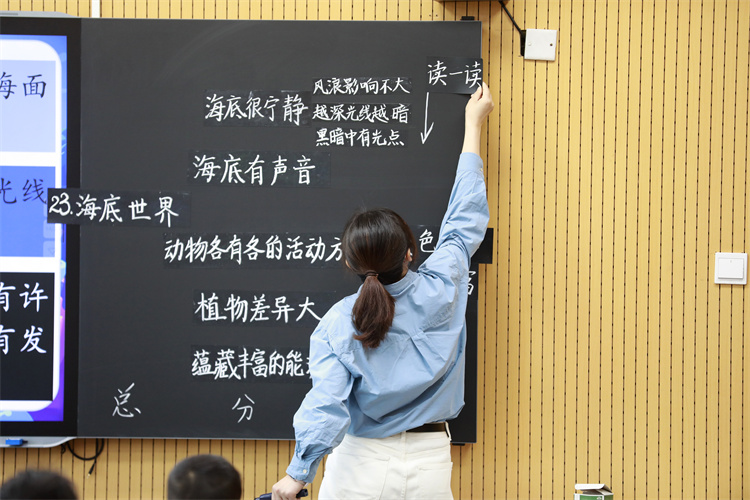 海面
光线
有许
有发
23.海底世界
海底很宁静
风浪影响不大
越深光线越暗
黑暗中有光点
读一读
海底有声音
动物各有各的活动方
色
植物差异大
富
蕴藏丰富的能
总 分